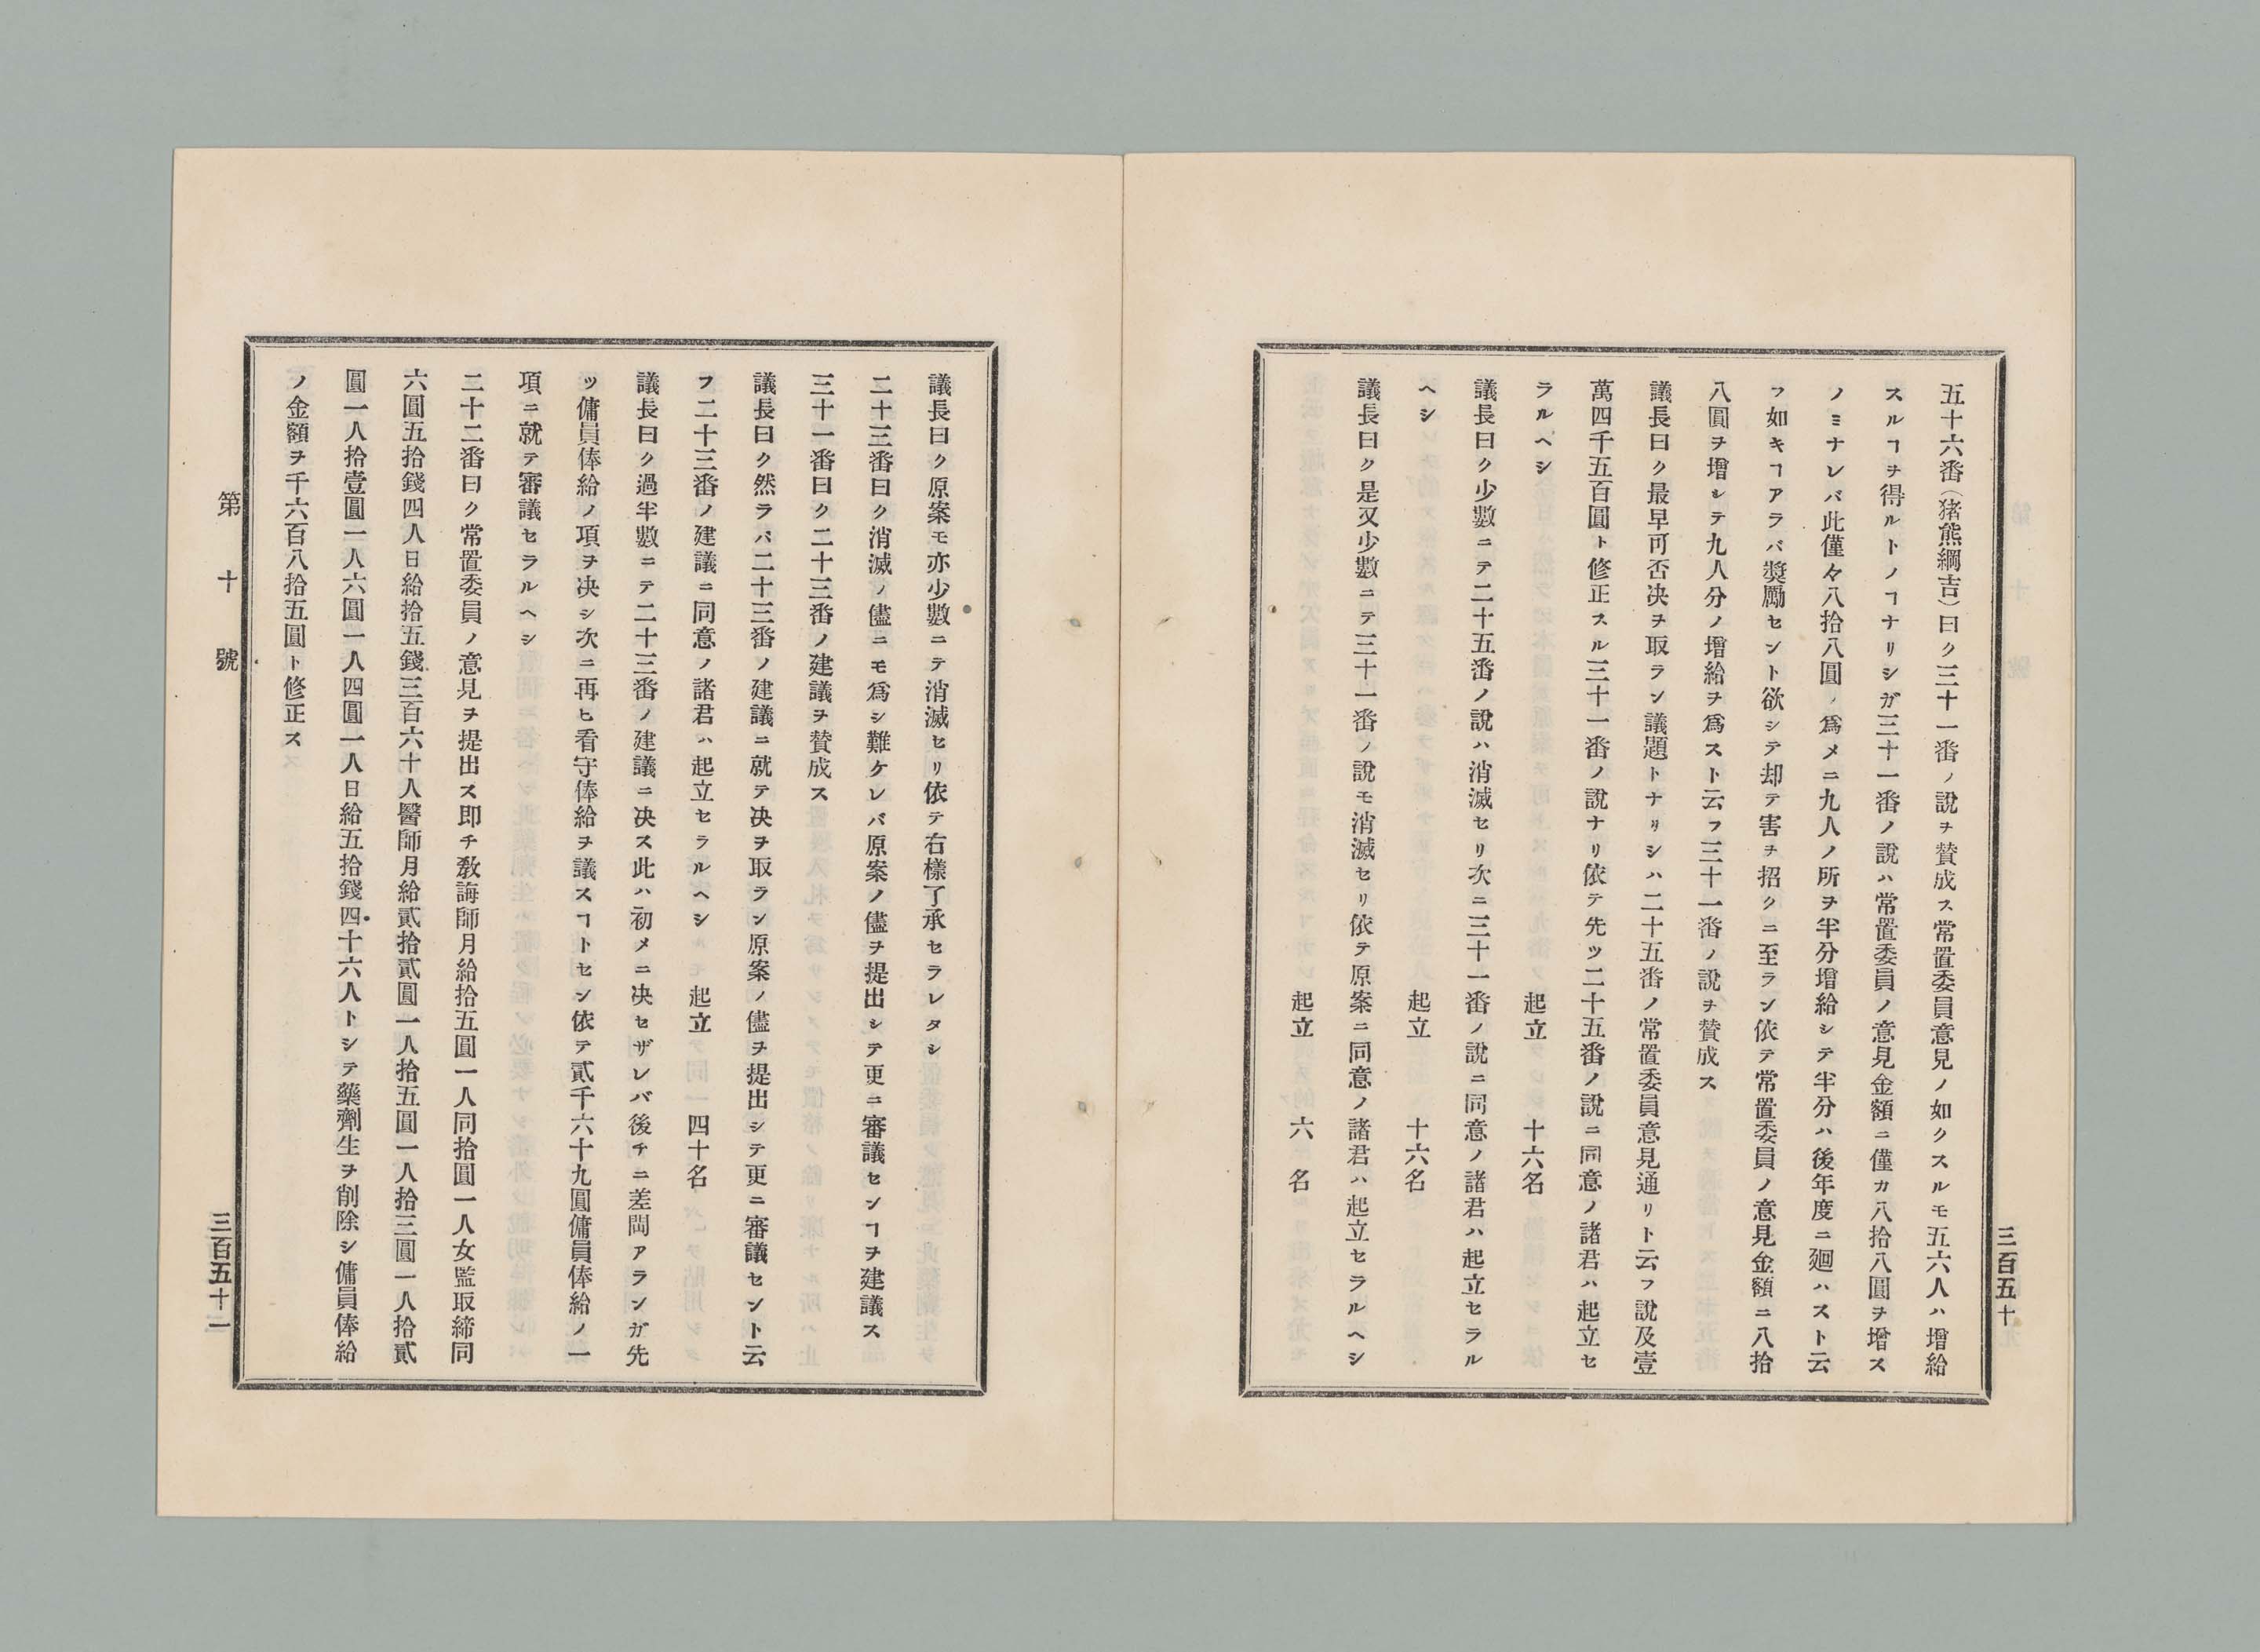 五十六番（猪熊綱吉）曰ク三十一番ノ說ヲ賛成ス常置委員意見ノ如クスルモ五六人ハ增給
スルヿヲ得ルトノヿナリシガ三十一番ノ說ハ常置委員ノ意見金額ニ僅カ八拾八圓ヲ增ス
ノミナレバ此僅々八拾八圓ノ爲メニ九人ノ所ヲ半分增給シテ半分ハ後年度ニ廻ハスト云
フ如キヿアラバ奬勵セント欲シテ却テ害ヲ招クニ至ラン依テ常置委員ノ意見金額ニ八拾
八圓ヲ增シテ九人分ノ增給ヲ爲スト云フ三十一番ノ說ヲ賛成ス
議長曰ク最早可否决ヲ取ラン議題トナリシハ二十五番ノ常置委員意見通リト云フ說及壹
萬四千五百圓ト修正スル三十一番ノ說ナリ依テ先ツ二十五番ノ說ニ同意ノ諸君ハ起立セ
ラルヘシ　起立　十六名
議長曰ク少數ニテ二十五番ノ說ハ消滅セリ次ニ三十一番ノ說ニ同意ノ諸君ハ起立セラル
ヘシ　起立　十六名
議長曰ク是又少數ニテ三十一番ノ說モ消滅セリ依テ原案ニ同意ノ諸君ハ起立セラルヘシ
起立　六名
三百五十
議長曰ク原案モ亦少數ニテ消滅セリ依テ右樣了承セラレタシ
二十三番曰ク消滅ノ儘ニモ爲シ難ケレバ原案ノ儘ヲ提出シテ更ニ審議センヿヲ建議ス
三十一番曰ク二十三番ノ建議ヲ賛成ス
議長曰ク然ラバ二十三番ノ建議ニ就テ决ヲ取ラン原案ノ儘ヲ提出シテ更ニ審議セント云
フ二十三番ノ建議ニ同意ノ諸君ハ起立セラルヘシ　起立　四十名
議長曰ク過半數ニテ二十三番ノ建議ニ决ス此ハ初メニ决セザレバ後チニ差閊アランガ先
ツ傭員俸給ノ項ヲ决シ次ニ再ヒ看守俸給ヲ議スヿトセン依テ貳千六十九圓傭員俸給ノ一
項ニ就テ審議セラルヘシ
二十二番曰ク常置委員ノ意見ヲ提出ス即チ敎誨師月給拾五圓一人同拾圓一人女監取締同
六圓五拾錢四人日給拾五錢三百六十人醫師月給貳拾貳圓一人拾五圓一人拾三圓一人拾貳
圓一人拾壹圓一人六圓一人四圓一人日給五拾錢四十六人トシテ藥劑生ヲ削除シ傭員俸給
ノ金額ヲ千六百八拾五圓ト修正ス
第十號
三百五十一